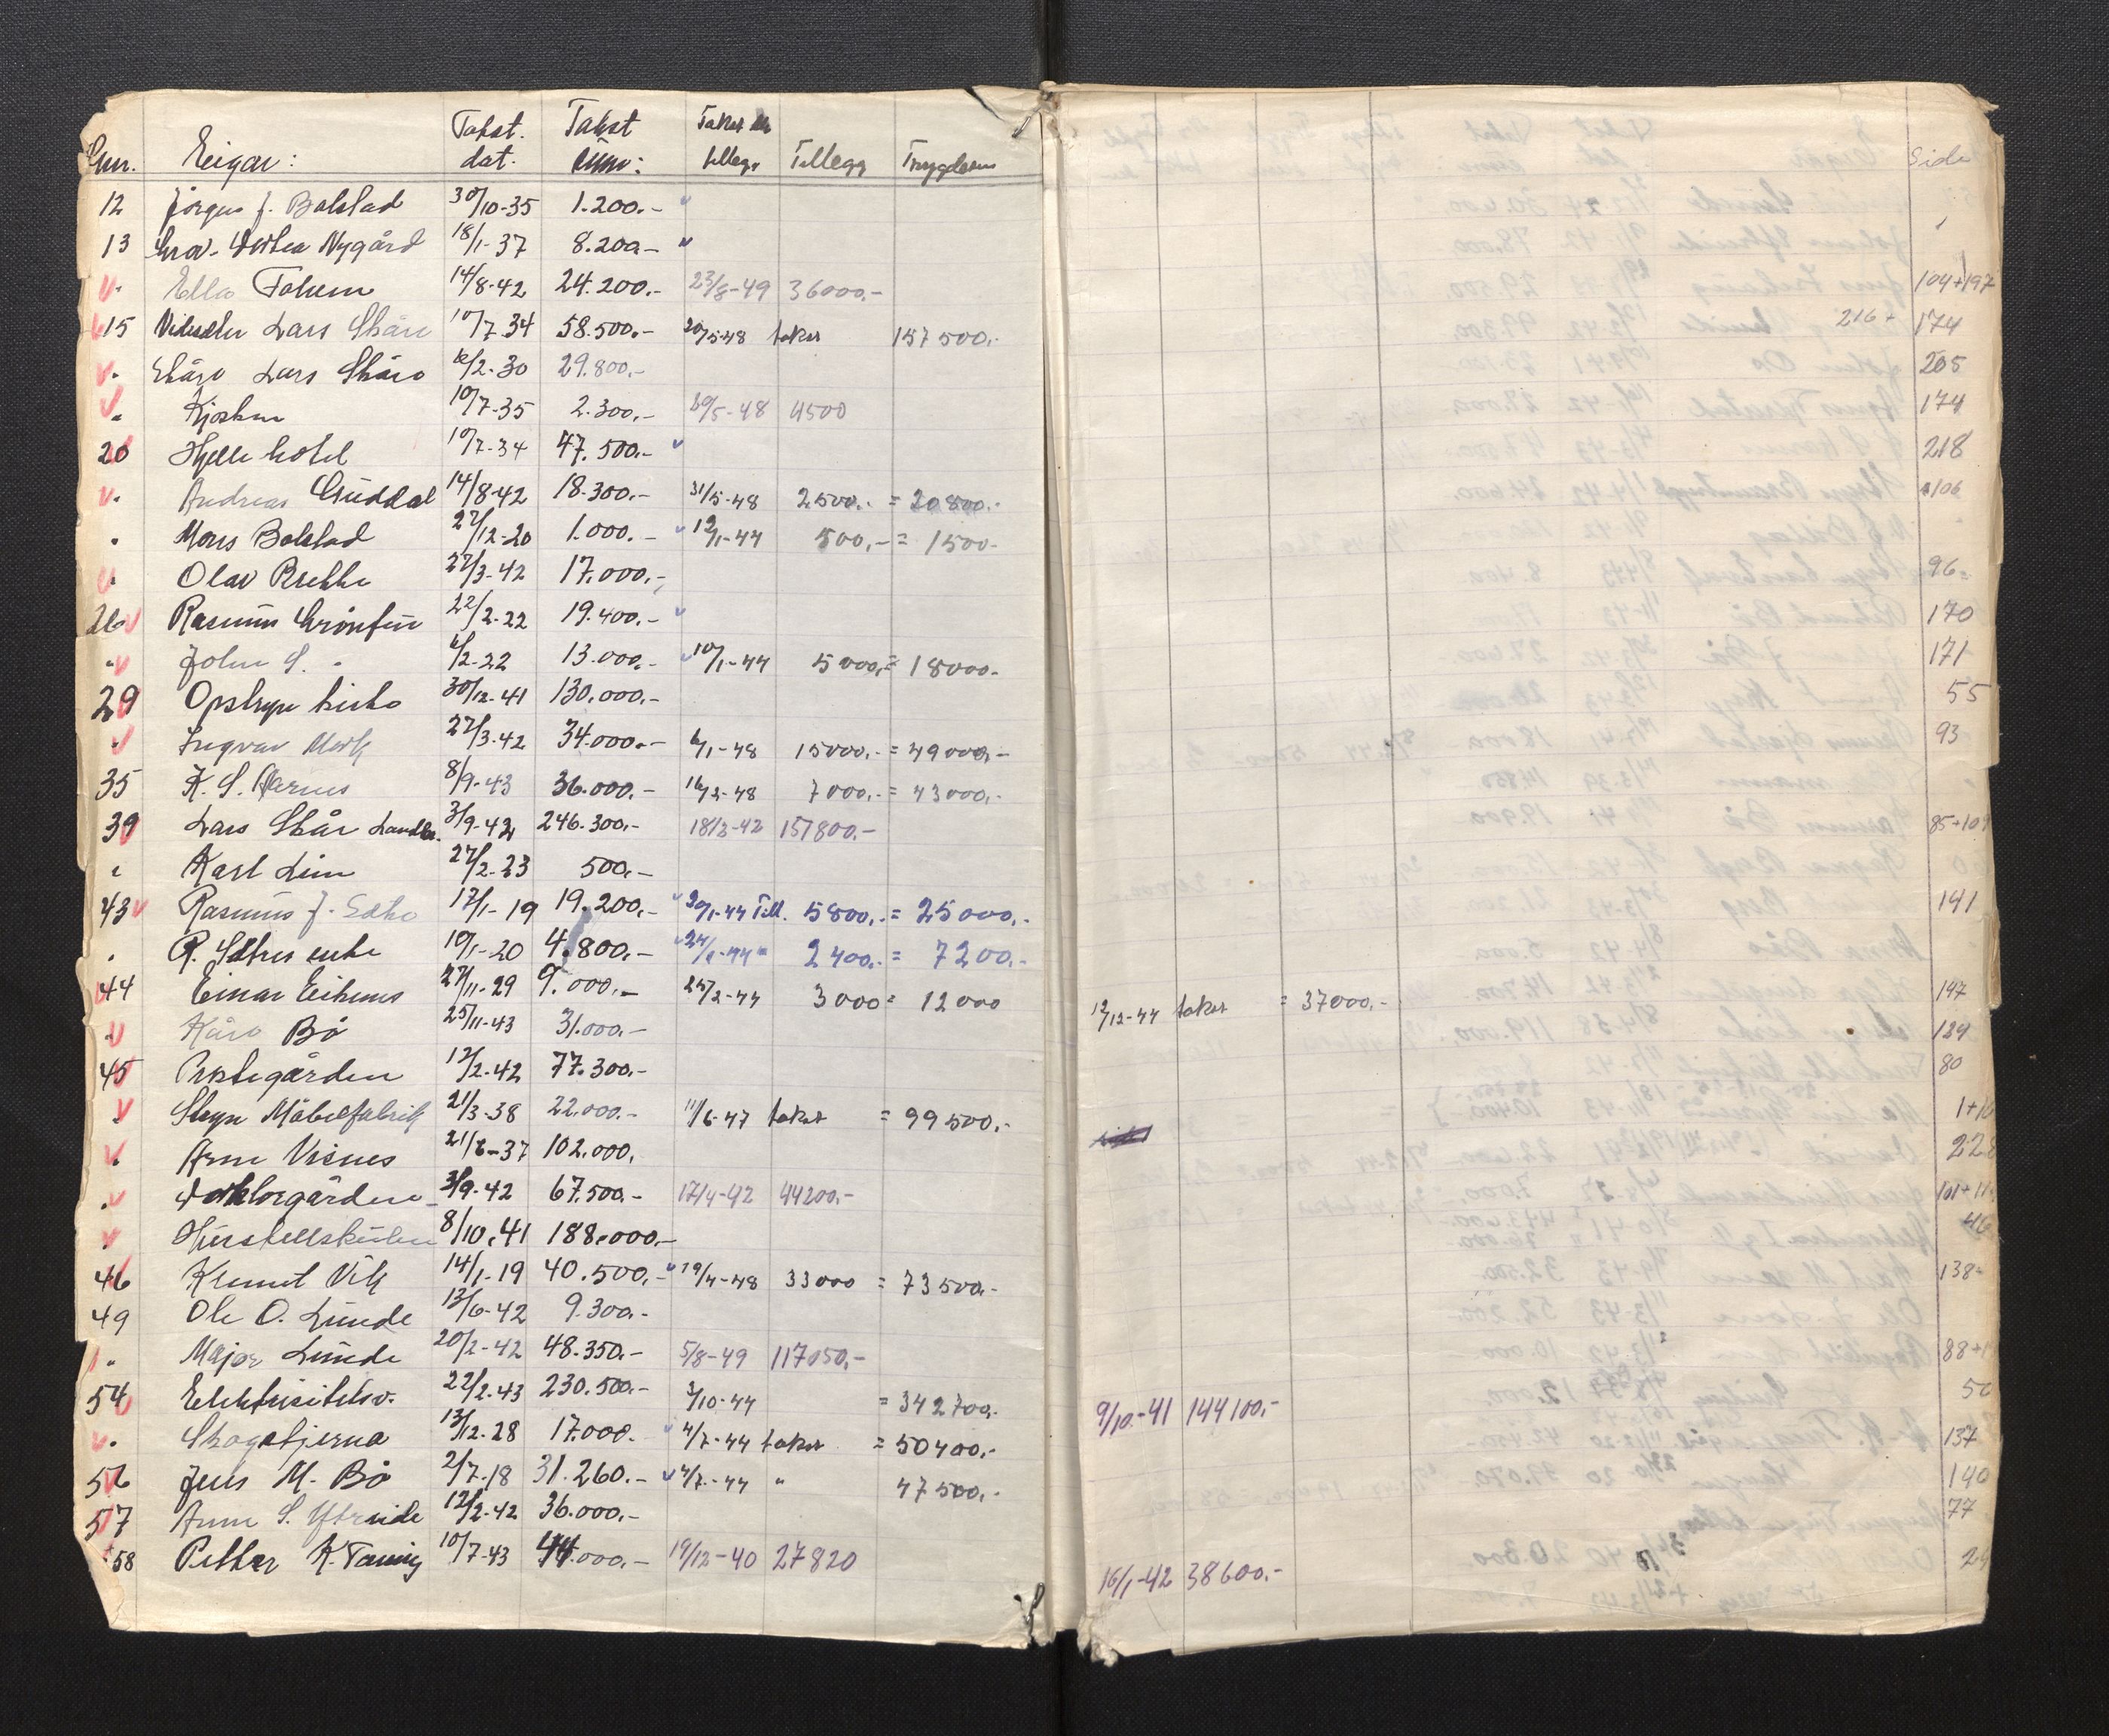 Gnr. Eigar: Takst. dat. Takst sum: Takst tillegg Tillegg Trygdesum Side
12 Jörgen J. Bolstad 30/10-35 1.200.-
13 Grav. Nygård 18/1-37 8.200.-
Ella Tolum 14/8-42 24.200.- 23/8-49 36000.- 104+197
15 Lars Skåre 10/7-34 58.500.- 20/5-48 takst 157500.- 216+ 174
Lars Skåre /2-30 29.800.- 205
" Kjosken 10/7-35 2.300.- 20/5-48 4500 174
20 Hjelle hotel 10/7-34 47.500.- 218
" Andreas Guddal 14/8-42 18.300.- 31/5-48 2500.- = 20800.- 106
" Mons Bolstad 27/12-20 1.000.- 12/1-44 500.- = 1500-
" Olav Brekke 27/3-42 17.000.- 96
26 Rasmus Grönfur 22/2-22 19.400.- 170
" John S. " /2-22 13.000.- 10/1-44 5000.- = 18000- 171
29 Opstryn kirke 30/12-41 130.000.- 55
" Ingvar Mork 27/3-42 34.000.- 6/1-48 15000.- = 49000.- 93
35 K. S. Aarnes 8/9-43 36.000.- 16/2-48 7000.- = 43000.-
39 Lars Skår Landh. 3/9-42 246.300.- 18/2-42 157800.- 85+109
" Karl Lien 27/2-23 500.-
43 Rasmus J. Sætre 17/1-19 19.200.- 20/1-44 Till. 5800.- = 25000.- 141
" R. Sætres enke 19/1-20 4.800.- 24/1-44 " 2400.- = 7200.-
44 Einar Eikenes 27/11-29 9.000.- 25/2-44 3000 = 12000 12/12-44 takst = 37000.- 147
" Kåre Bö 25/11-43 31.000.- 129
45 Prestegården 12/2-42 77.300.- 80
" Stryn Möbelfabrik 21/3-38 22.000.- 11/6-47 takst = 99500.- 1+10
" Arne Visnes 21/6-37 102.000. 228
" Doktorgården 3/9-42 67.500.- 17/4-42 44200.- 101+11
" Husstellskulen 8/10.41 188.000.- 46
46 Kremet Vik 14/1-19 40.500.- 19/4-48 33000 = 73500.- 138-
49 Ole O. Lunde 13/6-42 9.300.-
" Major Lunde 20/2-42 48.350.- 5/8-49 117050.- 88+1
54 Elektrisitetsv. 22/2-43 230.500.- 3/10-44 = 342700.- 9/10-41 144100.- 50
" Skogstjerna 13/12-28 17.000. 4/7-44 takst = 50400.- 137
56 Jens M. Bö 2/7-18 31.260.- 4/7-44 " 47500.- 140
57 Anne S. Ytreeide 12/2-42 36.000.- 77
58 Petter K. Tonning 10/7-43 44.000.- 19/12-40 27820 16/1-42 38600.- 29